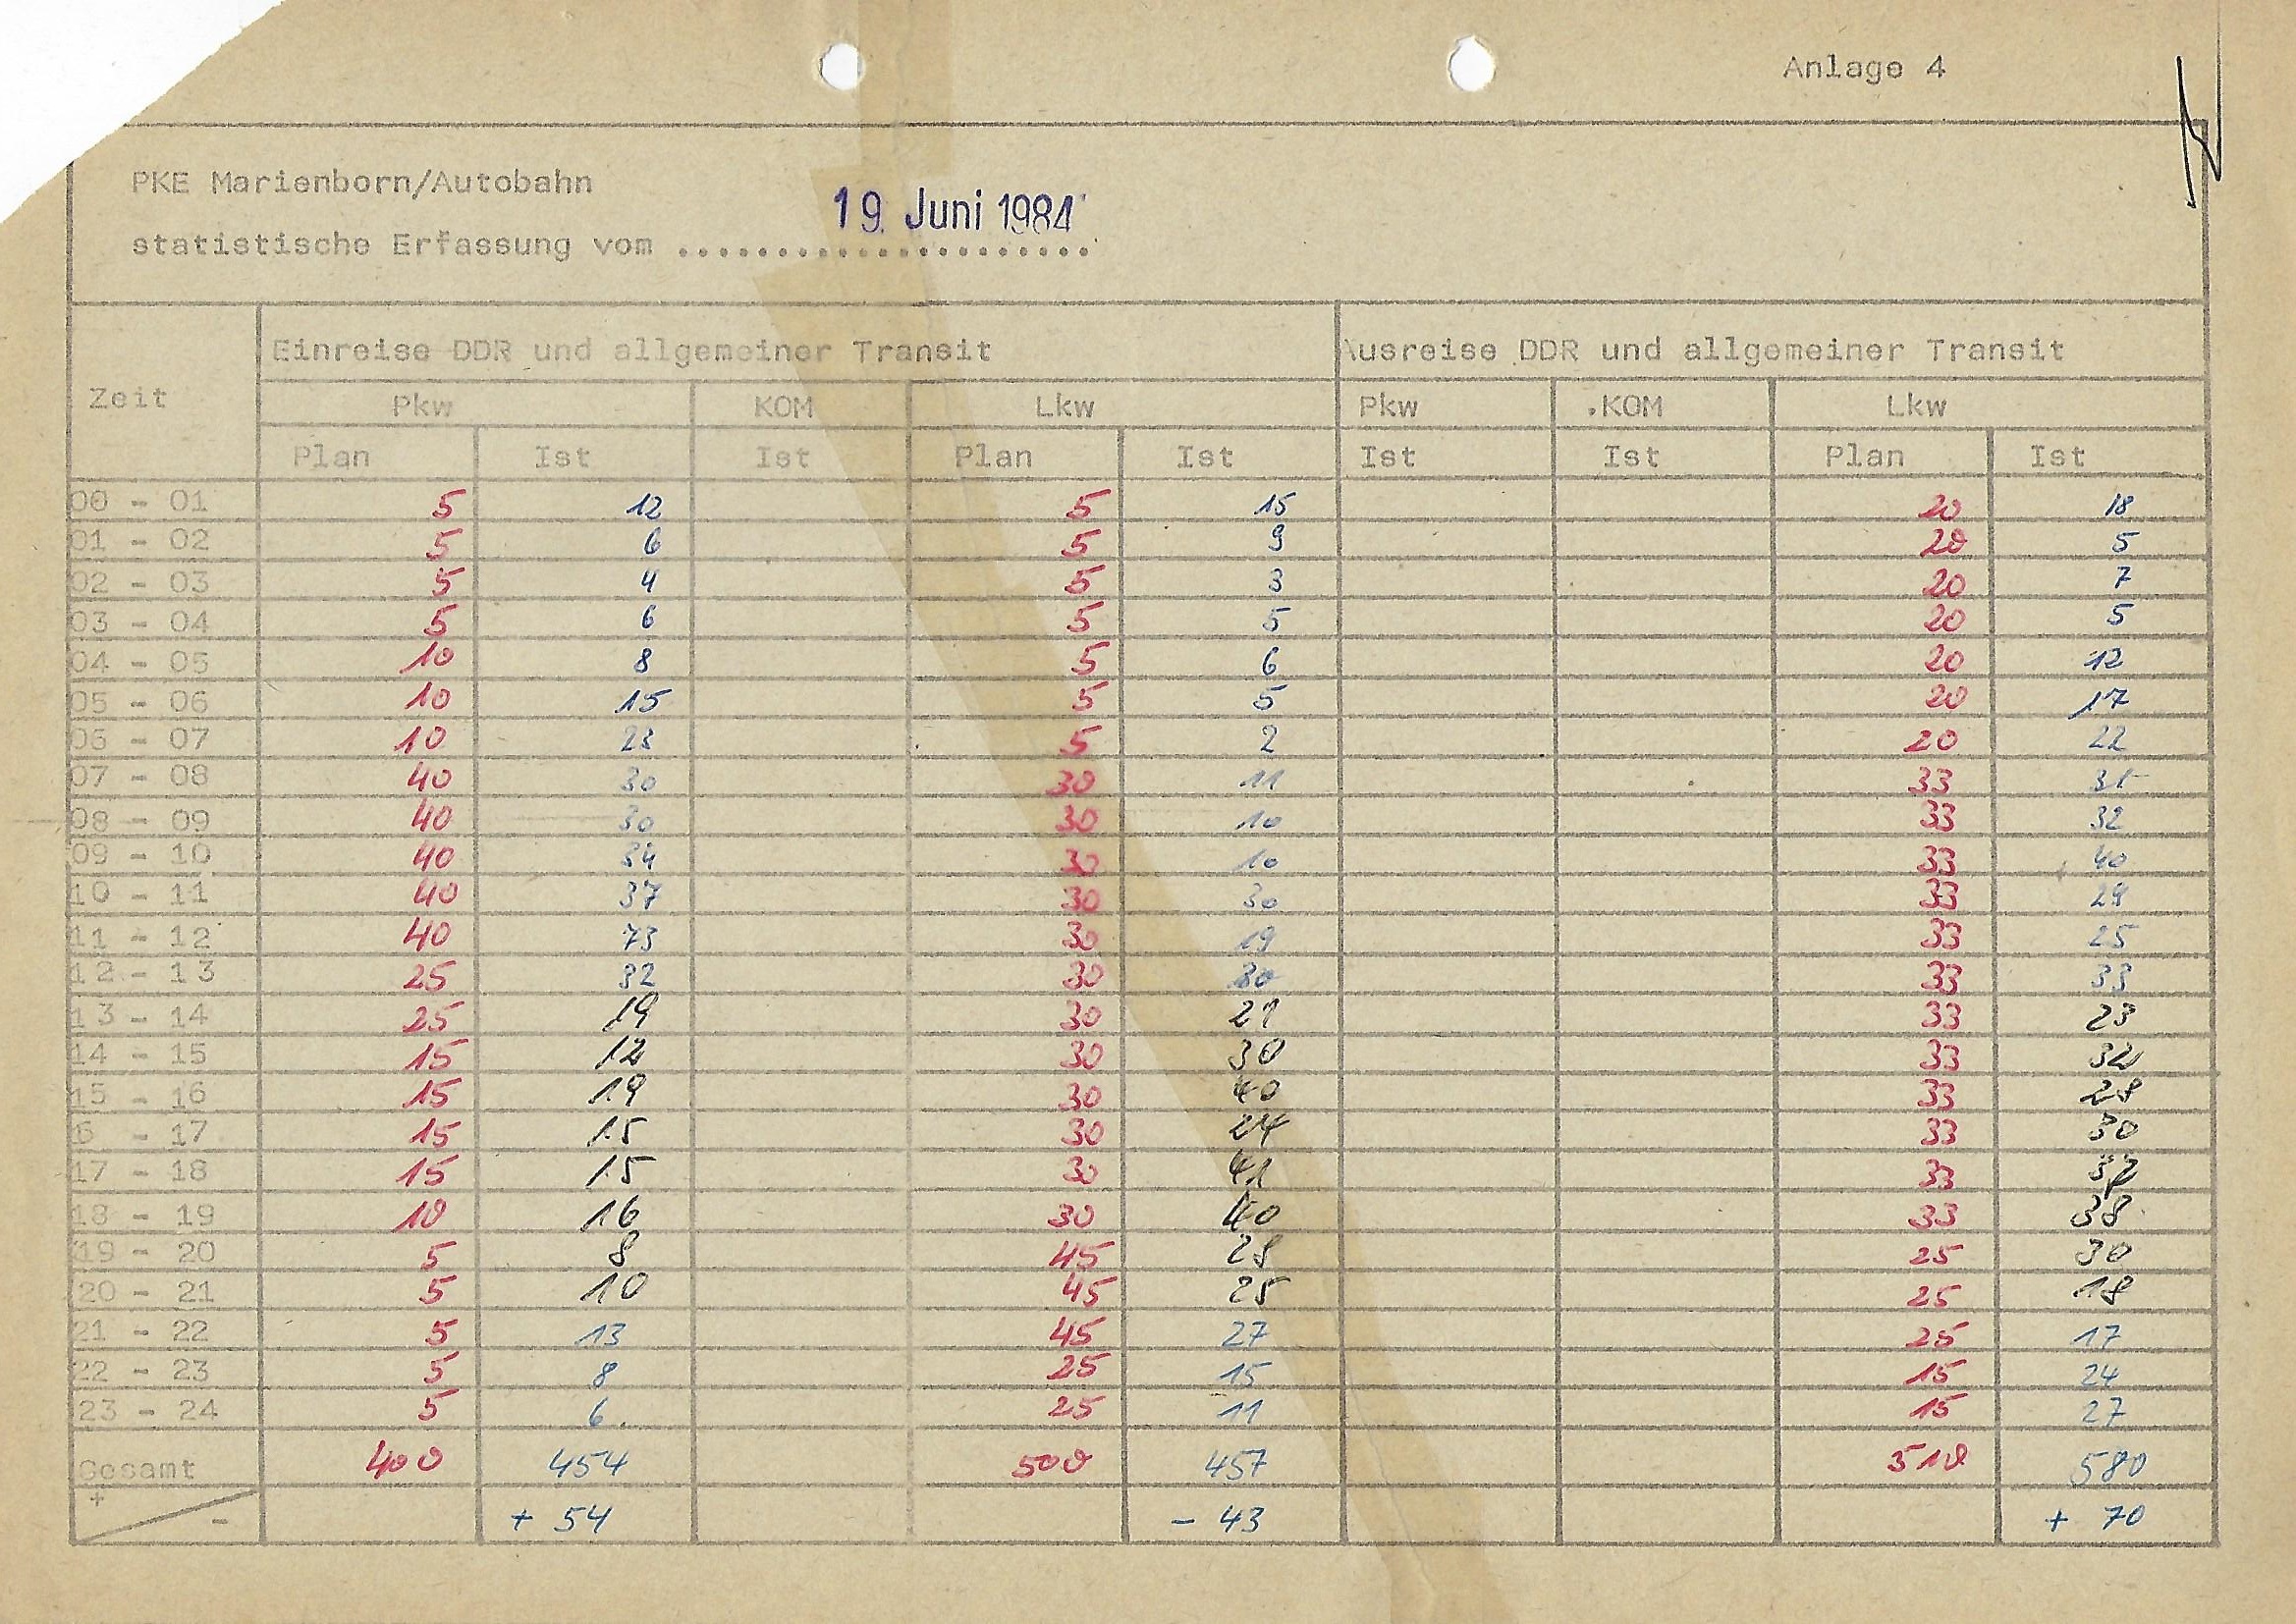 Anlage 4
PKE Marienborn/Autobahn
19. Juni 1984
statistische Erfassung vom .....................
Zeit Einreise DDR und allgemeiner Transit Ausreise DDR und allgemeiner Transit
Pkw KOM Lkw Pkw KOM Lkw
Plan Ist Ist Plan Ist Ist Ist Plan Ist
00 - 01 5 12 5 15 20 18
01 - 02 5 6 5 9 20 5
02 - 03 5 4 5 3 20 7
03 - 04 5 6 5 5 20 5
04 - 05 10 8 5 6 20 12
05 - 06 10 15 5 5 20 17
06 - 07 10 23 5 2 20 22
07 - 08 40 30 30 11 33 31
08 - 09 40 30 30 10 33 32
09 - 10 40 34 30 10 33 40
10 - 11 40 37 30 30 33 29
11 - 12 40 73 30 19 33 25
12 - 13 25 32 30 30 33 33
13 - 14 25 19 30 21 33 23
14 - 15 15 12 30 30 33 32
15 - 16 15 19 30 40 33 28
6 - 17 15 15 30 24 33 30
17 - 18 15 15 30 41 33
18 - 19 10 16 30 40 33 38
19 - 20 5 8 45 28 25 30
20 - 21 5 10 45 25 25 18
21 - 22 5 13 45 27 25 17
22 - 23 5 8 25 15 15 24
23 - 24 5 6 25 11 15 27
Gesamt 400 454 500 457 510 580
+ - + 54 - 43 + 70